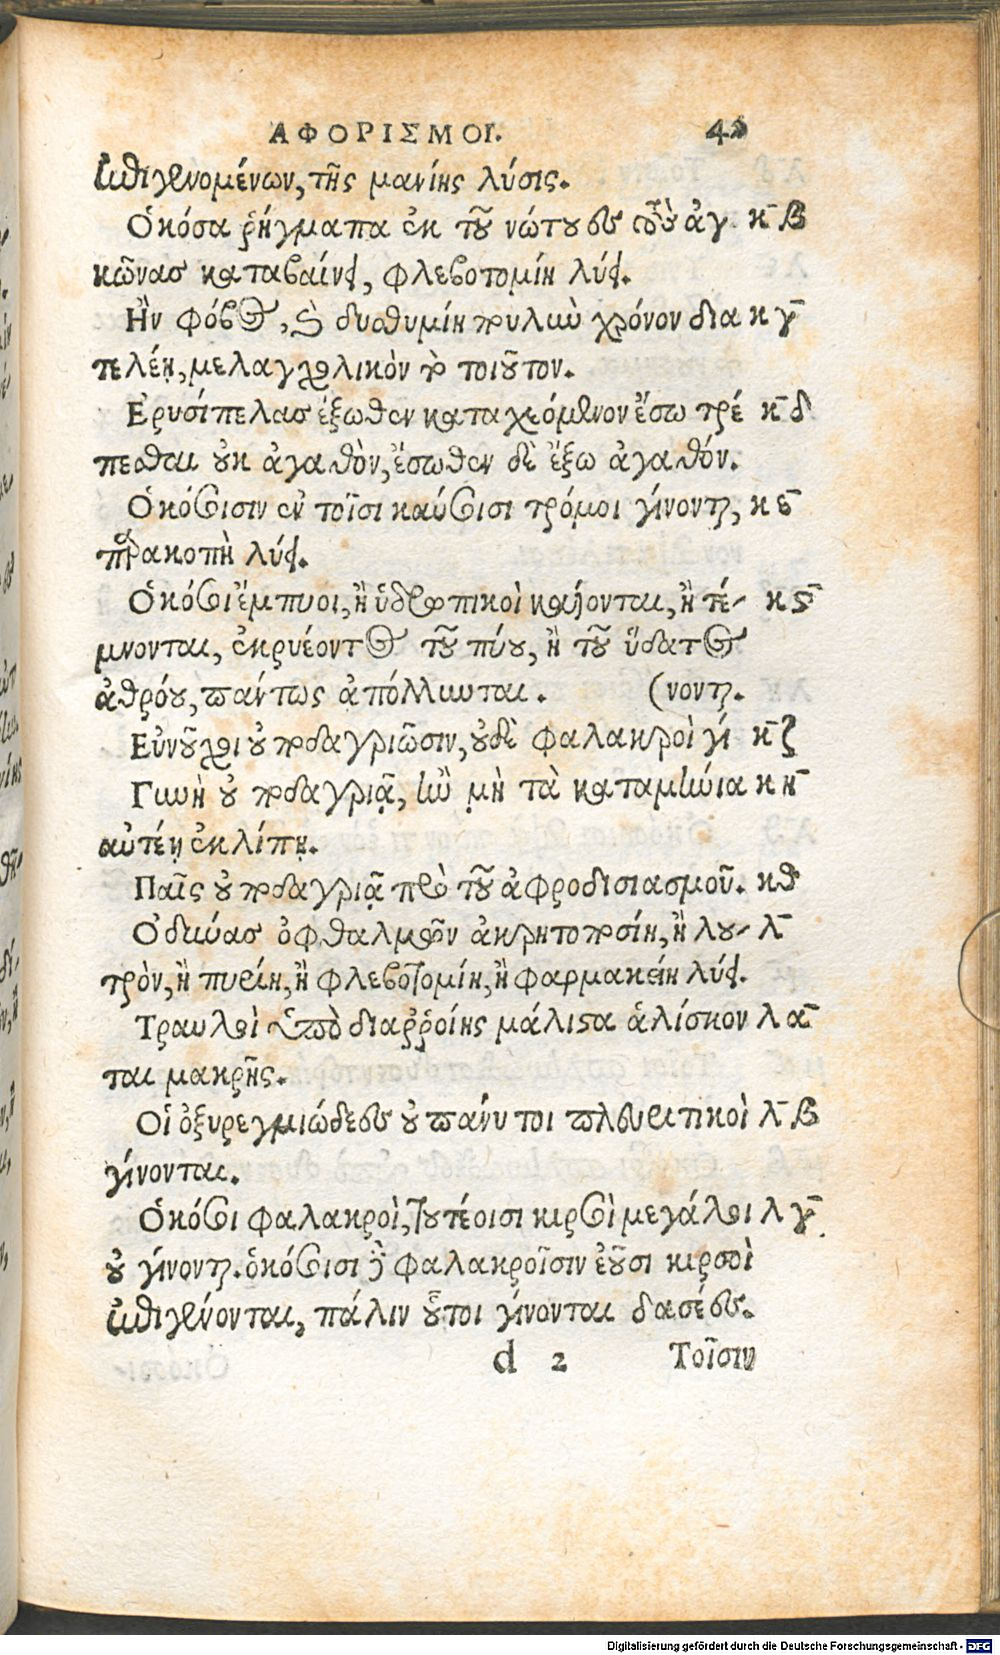 ΑΦΟΡΙΣΜΟΙ.
ἐπιγενομένων, τῆς μανίης λύσις.
Ὁκόσα ῥήγματα ἐκ τοῦ νώτου ἐς τοὺς ἀγ κ̄β
κῶνας καταβαίνει, φλεβοτομίη λύει.
Ἢν φόβος, καὶ δυσθυμίη πουλὺν χρόνον δια κ̄γ
τελέῃ, μελαγχολικὸν τὸ τοιοῦτον.
Ἐρυσίπελας ἔξωθεν καταχεόμενον ἔσω τρέ κ̄δ
πεσθαι οὐκ ἀγαθὸν, ἔσωθεν δὲ ἔξω ἀγαθόν.
Ὁκόσοισιν ἐν τοῖσι καύσοισι τρόμοι γίνονται, κ̄ε
παρακοπὴ λύει.
Ὁκόσοι ἔμπυοι, ἢ ὑδρωπικοὶ καίονται, ἢ τέ- κ̄ς
μνονται, ἐκρυέοντος τοῦ πύου, ἢ τοῦ ὕδατος
ἀθρόου, πάντως ἀπόλλυνται. (νονται.
Εὐνοῦχοι οὐ ποδαγριῶσιν, οὐδὲ φαλακροὶ γί κ̄ζ
Γυνὴ οὐ ποδαγριᾷ, ἢν μὴ τὰ καταμήνια κ̄η
αὐτέῃ ἐκλίπῃ.
Παῖς οὐ ποδαγριᾷ πρὸ τοῦ ἀφροδισιασμοῦ. κ̄θ
Ὀδύνας ὀφθαλμῶν ἀκρητοποσίη, ἢ λου- λ̄
τρὸν, ἢ πυρίη, ἢ φλεβοτομίη, ἢ φαρμακείη λύει.
Τραυλοὶ ὑπὸ διαῤῥοίης μάλιστα ἁλίσκον λ̄α
ται μακρῆς.
Οἱ ὀξυρεγμιώδεες οὐ πάνυ τοι πλευριτικοὶ λ̄β
γίνονται.
Ὁκόσοι φαλακροὶ, τουτέοισι κιρσοὶ μεγάλοι λ̄γ
οὐ γίνονται. ὁκόσοισι δὲ φαλακροῖσιν ἐοῦσι κιρσοὶ
ἐπιγένονται, πάλιν οὗτοι γίνονται δασέες.
d 2 Τοῖσιν
Digitalisierung gefördert durch die Deutsche Forschungsgemeinschaft - DFG